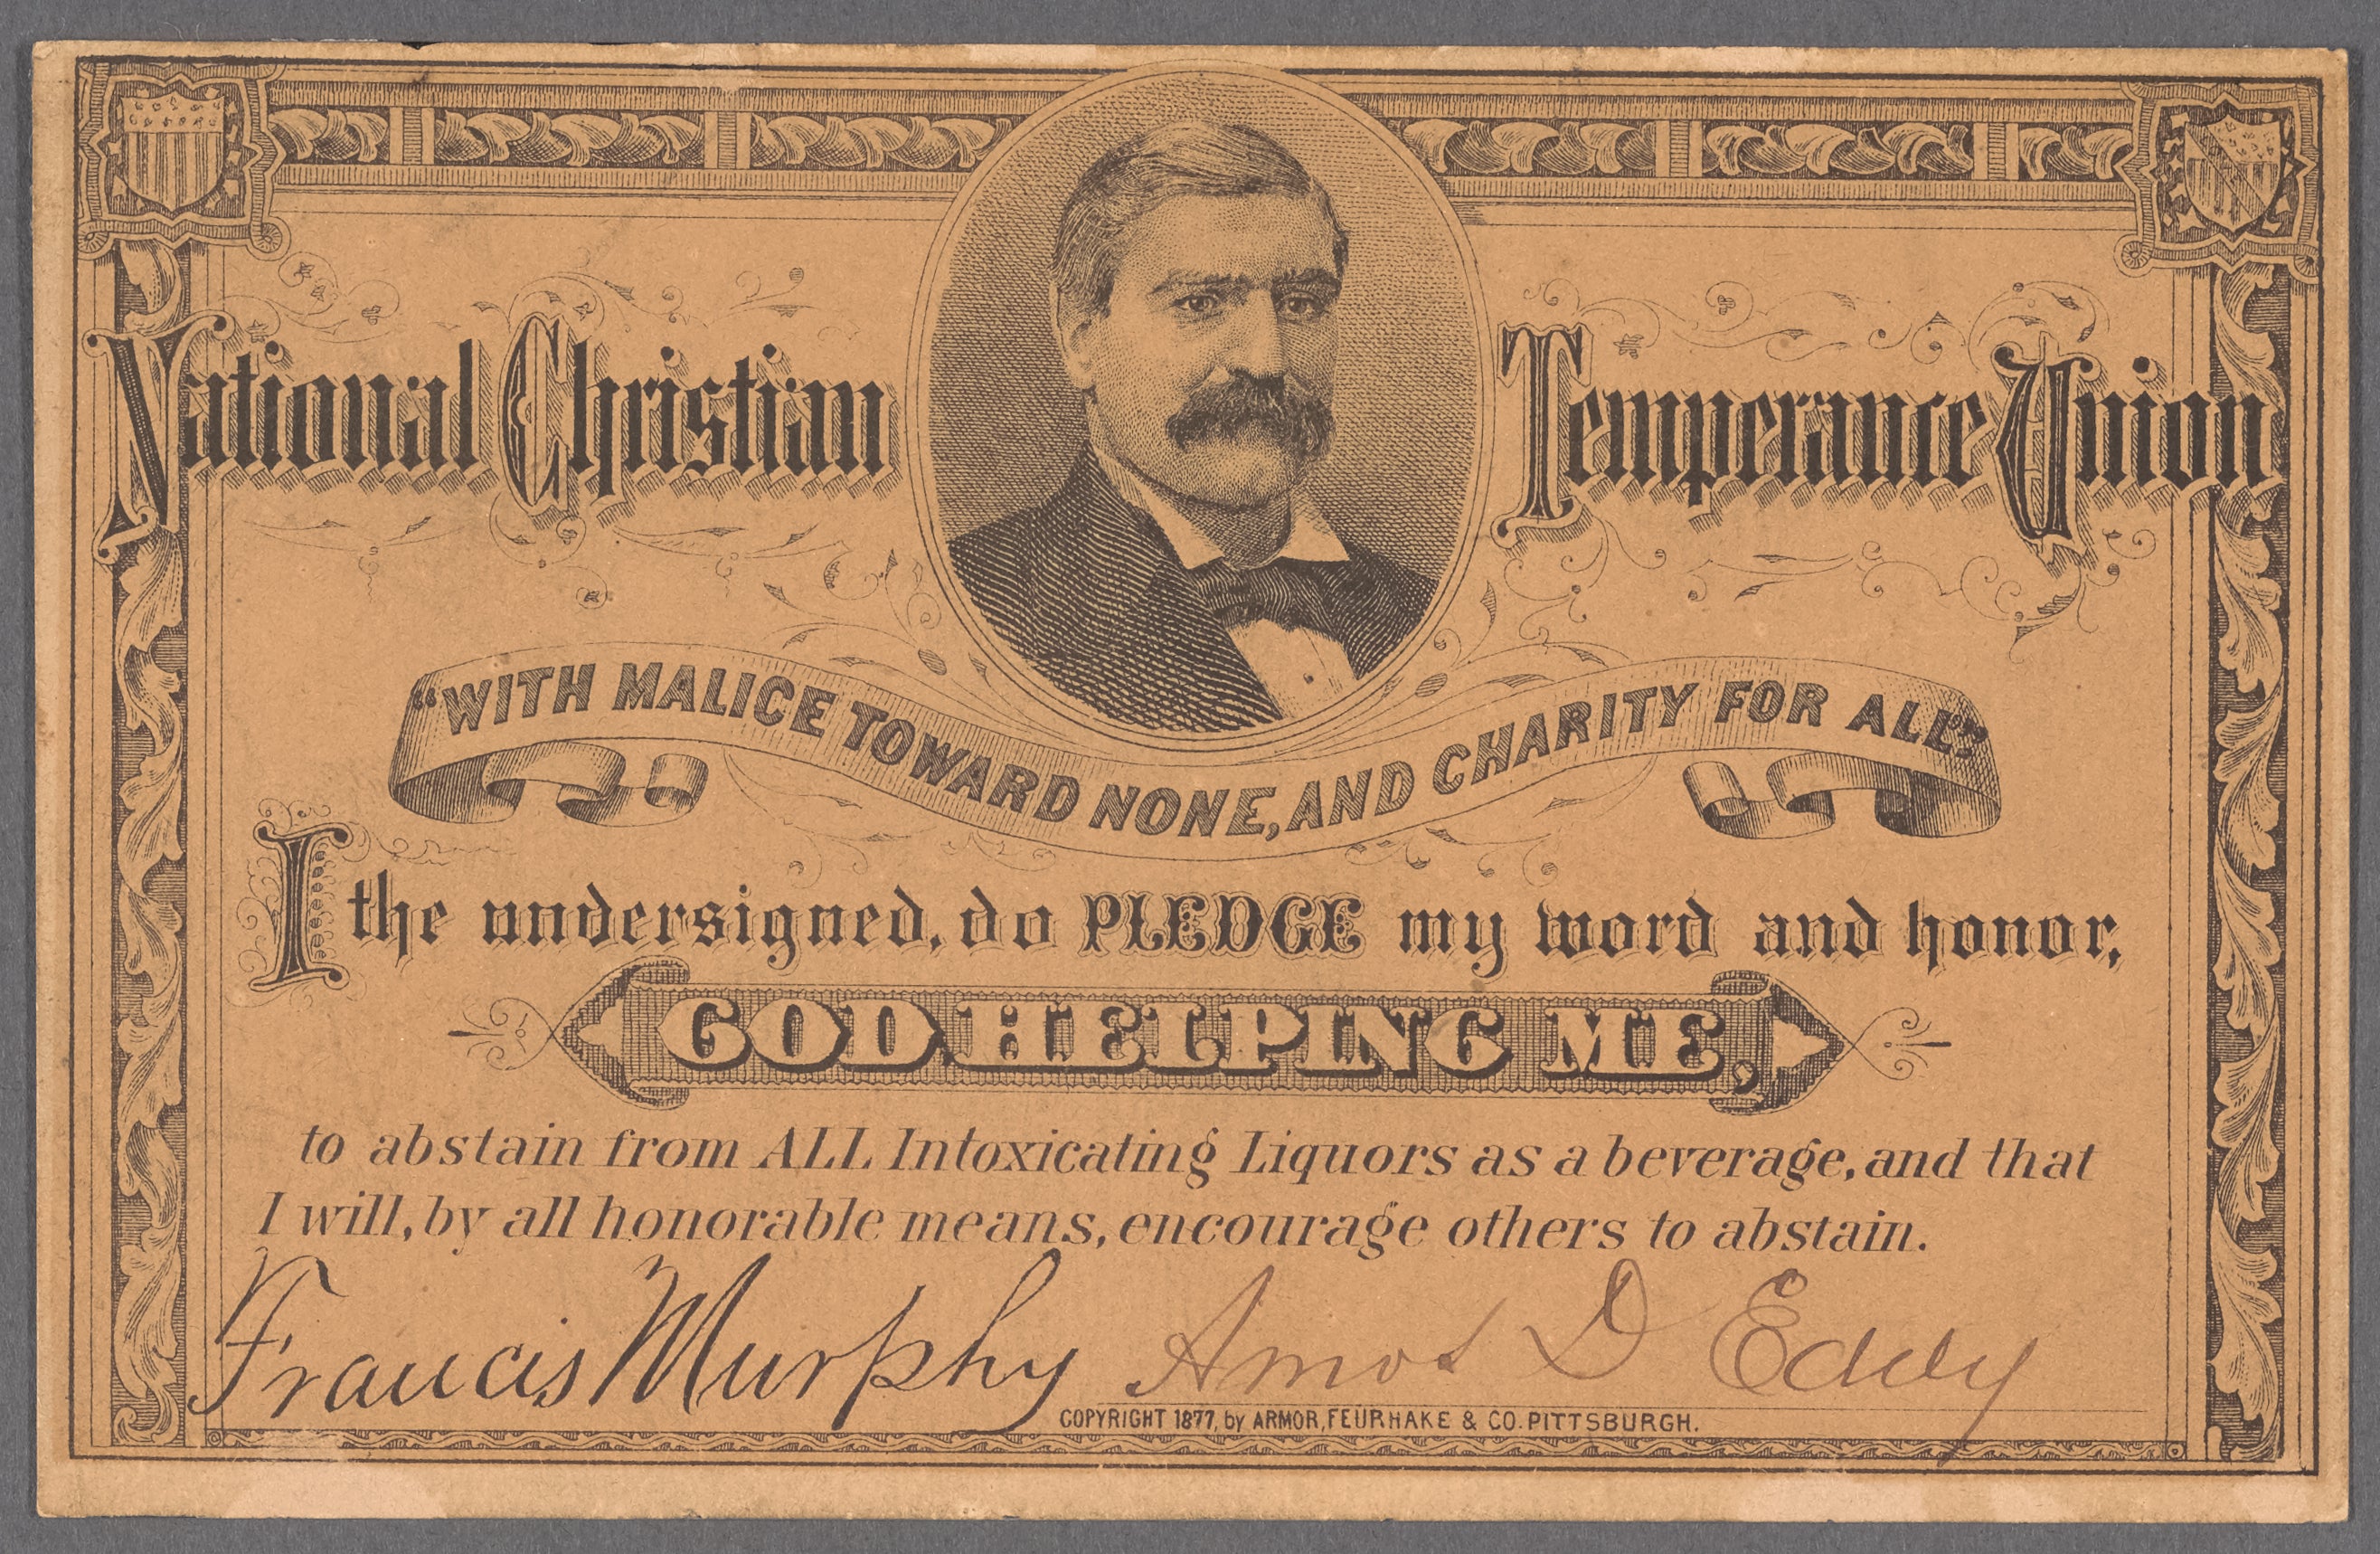 National Christian Temperance Union
"WITH MALICE TOWARD NONE, AND CHARITY FOR ALL."
I the undersigned, do PLEDGE my word and honor,
GOD HELPING ME,
to abstain from ALL Intoxicating Liquors as a beverage, and that
I will, by all honorable means, encourage others to abstain.
Francis Murphy Amos D Eddy
COPYRIGHT 1877, by ARMOR, FEURHAKE & CO. PITTSBURGH.